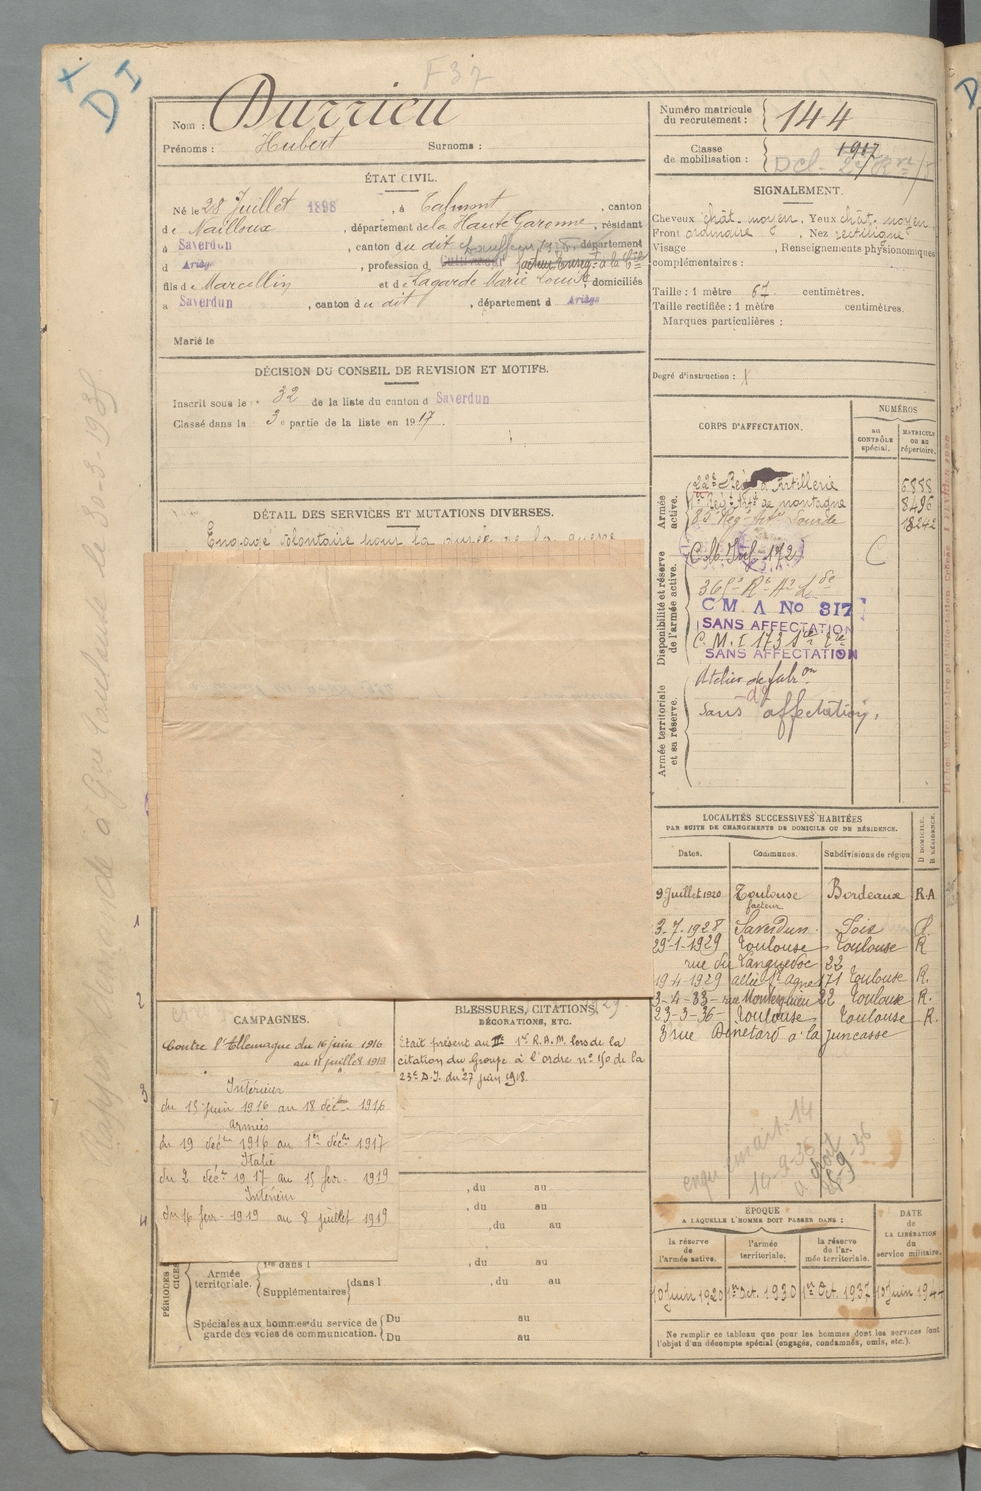 F37
X
D I
Nom : Durrieu
Prénoms : Hubert Surnoms :
ÉTAT CIVIL.
Né le 28 Juillet 1898, à Calmont, canton
de Nailloux, département de la Haute Garonne, résidant
à Saverdun, canton du dit, département
d Ariège, profession d Cultivateur
fils de Marcellin et de Lagarde Marie Louise, domiciliés
à Saverdun, canton du dit, département d Ariège
Marié le
DÉCISION DU CONSEIL DE REVISION ET MOTIFS.
Inscrit sous le n° 32 de la liste du canton d Saverdun
Classé dans la 3e partie de la liste en 1917.
DÉTAIL DES SERVICES ET MUTATIONS DIVERSES.
Engagé volontaire pour la durée de la guerre
CAMPAGNES.
Contre l'Allemagne du 16 juin 1916
au 11 juillet 1919
Intérieur
du 15 juin 1916 au 18 déc. 1916
Armées
du 19 déc. 1916 au 1er déc. 1917
Italie
du 2 déc. 1917 au 15 fevr. 1919
Intérieur
du 16 fevr. 1919 au 8 juillet 1919
BLESSURES, CITATIONS,
DÉCORATIONS, ETC.
Etait présent au IIe 1er R.A.M. lors de la
citation du Groupe à l'ordre n° 150 de la
23e D.I. du 27 juin 1918.
, du au
, du au
, du au
PÉRIODES
Armée territoriale. dans l , du au
Supplémentaires dans l , du au
Spéciales aux hommes du service de garde des voies de communication. Du au
Du au
Numéro matricule du recrutement : 144
Classe de mobilisation : 1917
SIGNALEMENT.
Cheveux chât. moyen, Yeux chât. moyen
Front ordinaire, Nez rectiligne
Visage , Renseignements physionomiques
complémentaires :
Taille : 1 mètre 67 centimètres.
Taille rectifiée : 1 mètre centimètres.
Marques particulières :
Degré d'instruction :
CORPS D'AFFECTATION.
NUMÉROS
au CONTRÔLE spécial.
MATRICULE ou au répertoire.
Armée active.
22e Reg. d'Artillerie 6888
1er Reg. Art. de montagne 8496
83e Reg. Art. Lourde 18242
Disponibilité et réserve de l'armée active.
C.M. Inf. 172 C
C M A No 317
SANS AFFECTATION
C.M.I 173
SANS AFFECTATION
Armée territoriale et sa réserve.
Atelier de fabron
Sans affectation.
LOCALITÉS SUCCESSIVES HABITÉES
PAR SUITE DE CHANGEMENTS DE DOMICILE OU DE RÉSIDENCE.
Dates. Communes. Subdivisions de région D DOMICILE. R RÉSIDENCE.
9 Juillet 1920 Toulouse Bordeaux R.A
facteur
3-7-1928 Saverdun Foix
29-1-1929 Toulouse Toulouse R
rue du Languedoc 22
19-4-1929 allée St Agne 171 Toulouse R.
3-4-33 22 Toulouse R.
23-3-36 Toulouse Toulouse R.
3 rue à la Juncasse
14-9-36
ÉPOQUE
A LAQUELLE L'HOMME DOIT PASSER DANS :
DATE de LA LIBÉRATION du service militaire.
la réserve de l'armée active. l'armée territoriale. la réserve de l'armée territoriale.
10 Juin 1920 1er Oct. 1930 1er Oct. 1937 10 Juin 1944
Ne remplir ce tableau que pour les hommes dont les services font
l'objet d'un décompte spécial (engagés, condamnés, omis, etc.).
1
2
3
4